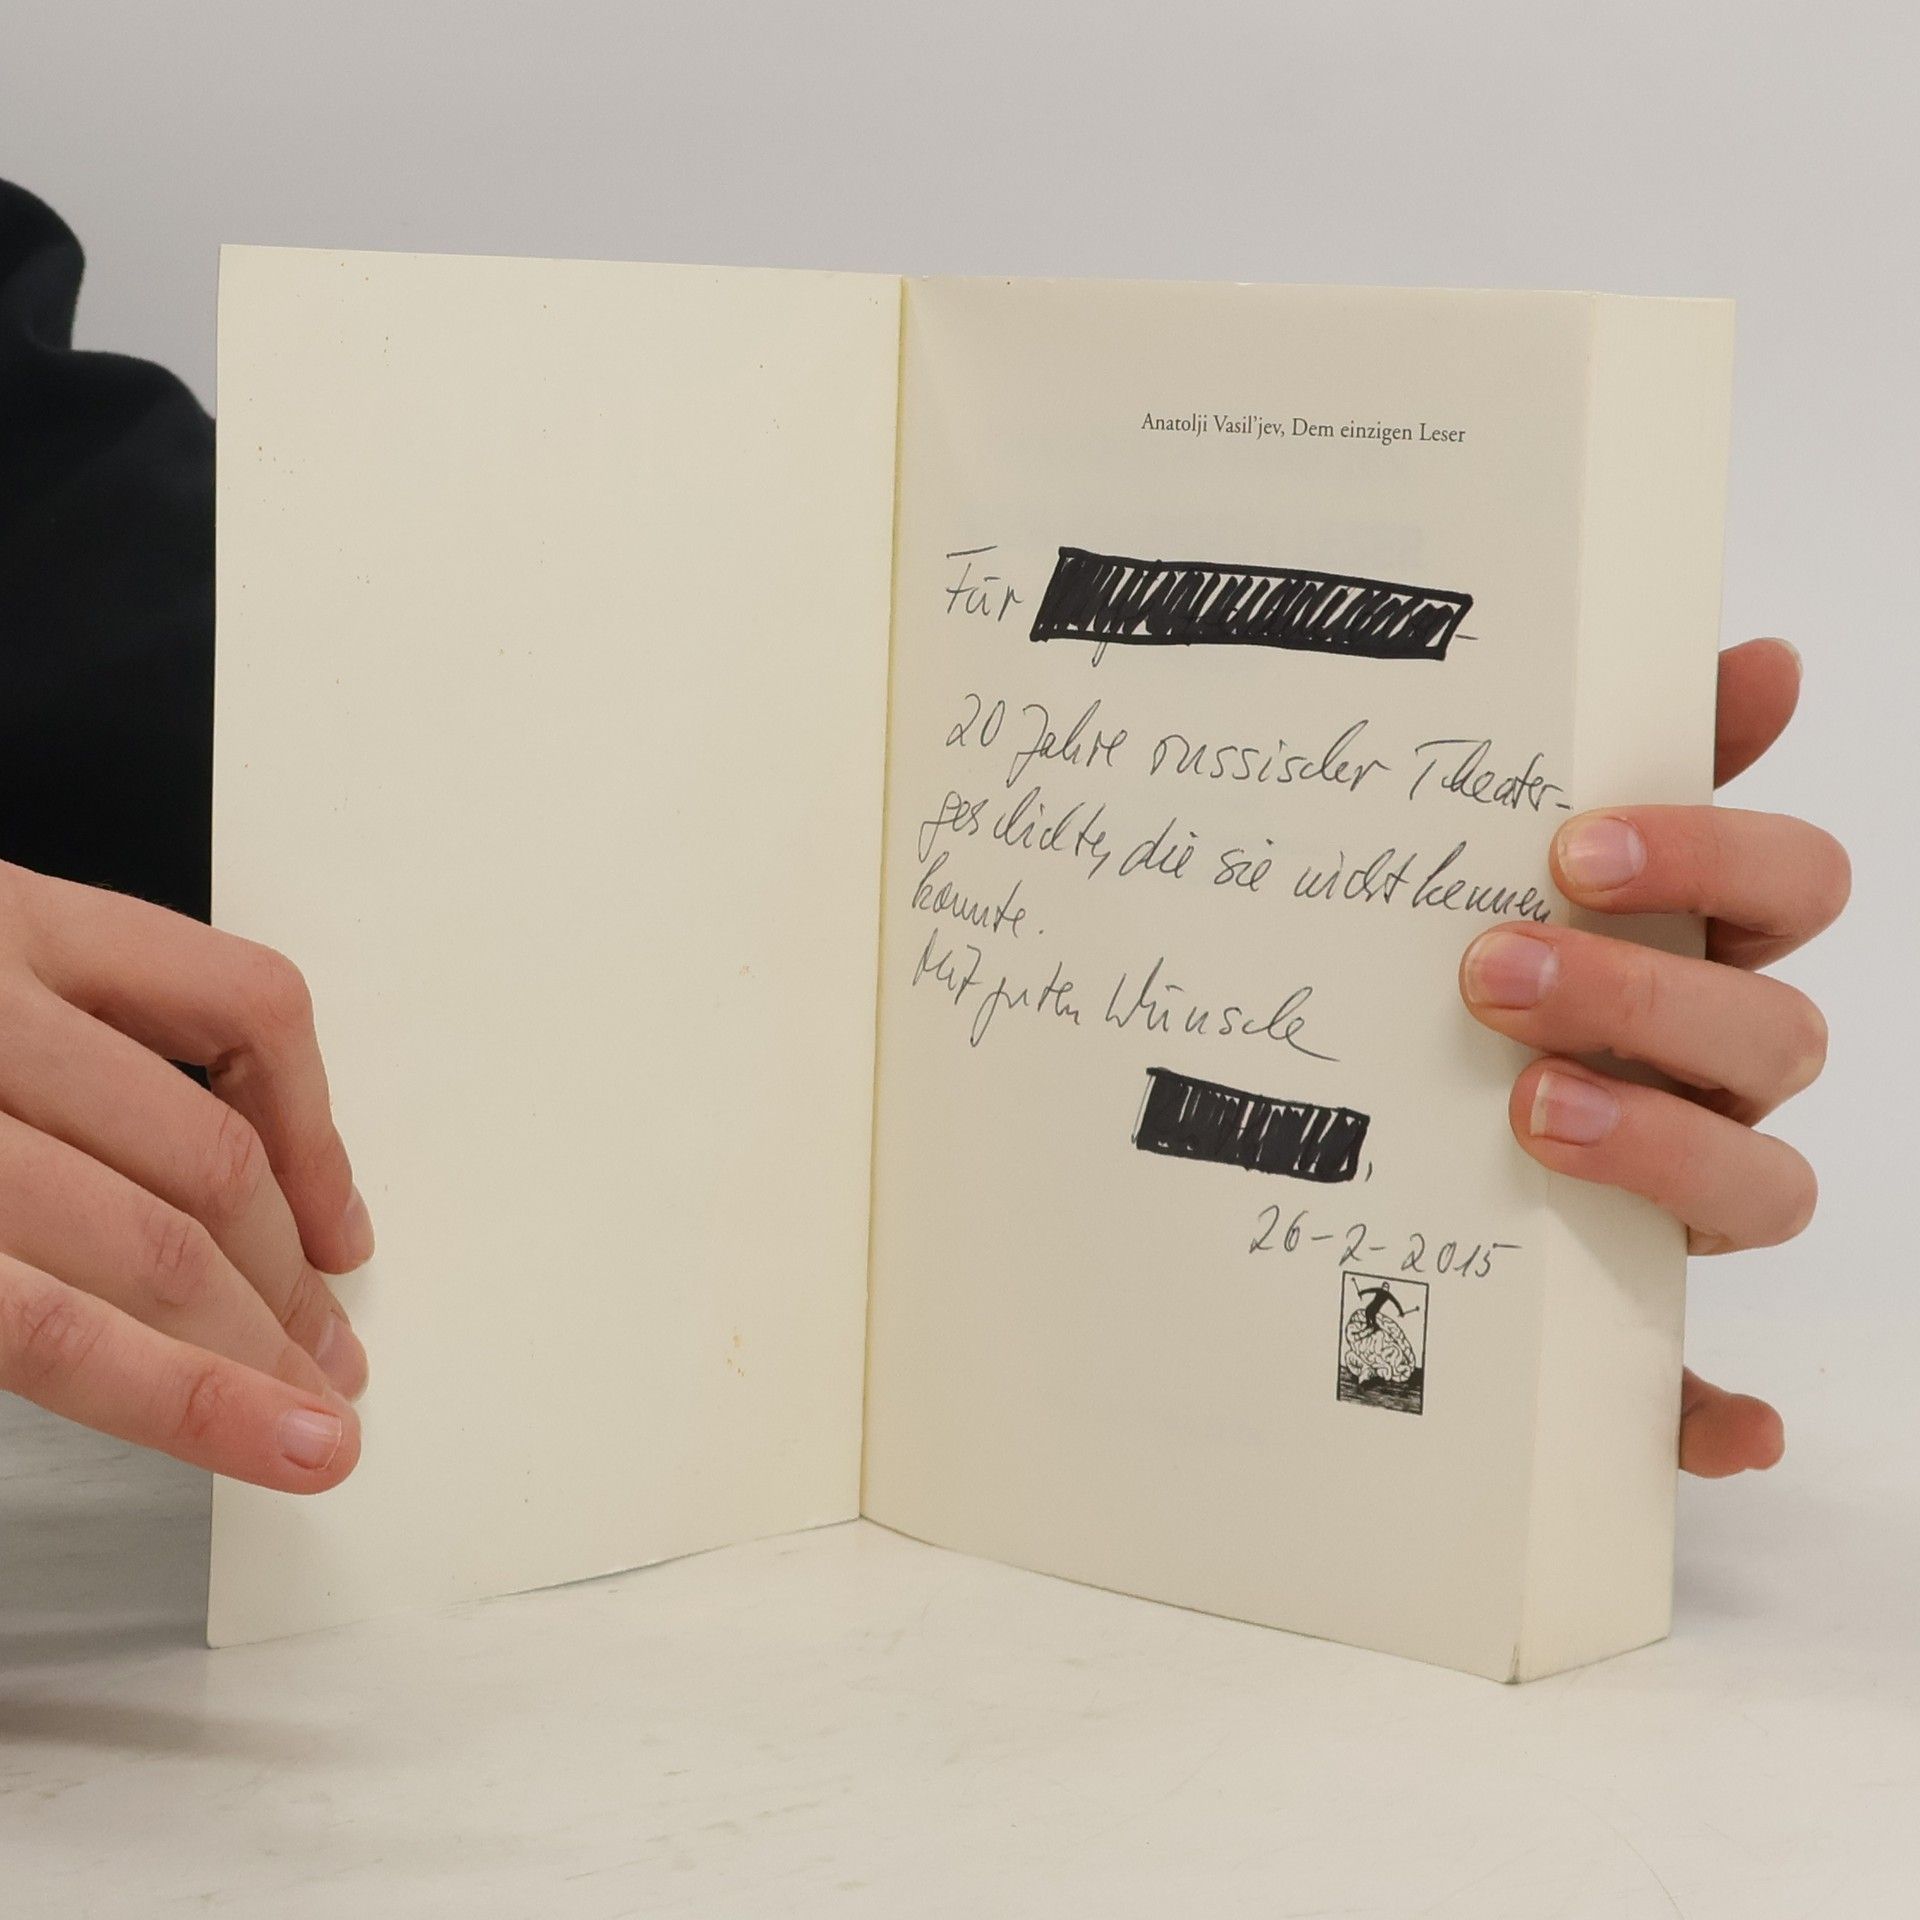 Anatolji Vasil'jev, Dem einzigen Leser
Für
20 Jahre russischer Theater-
geschichte, die sie nicht kennen
konnte.
Mit guten Wünsche
26-2-2015